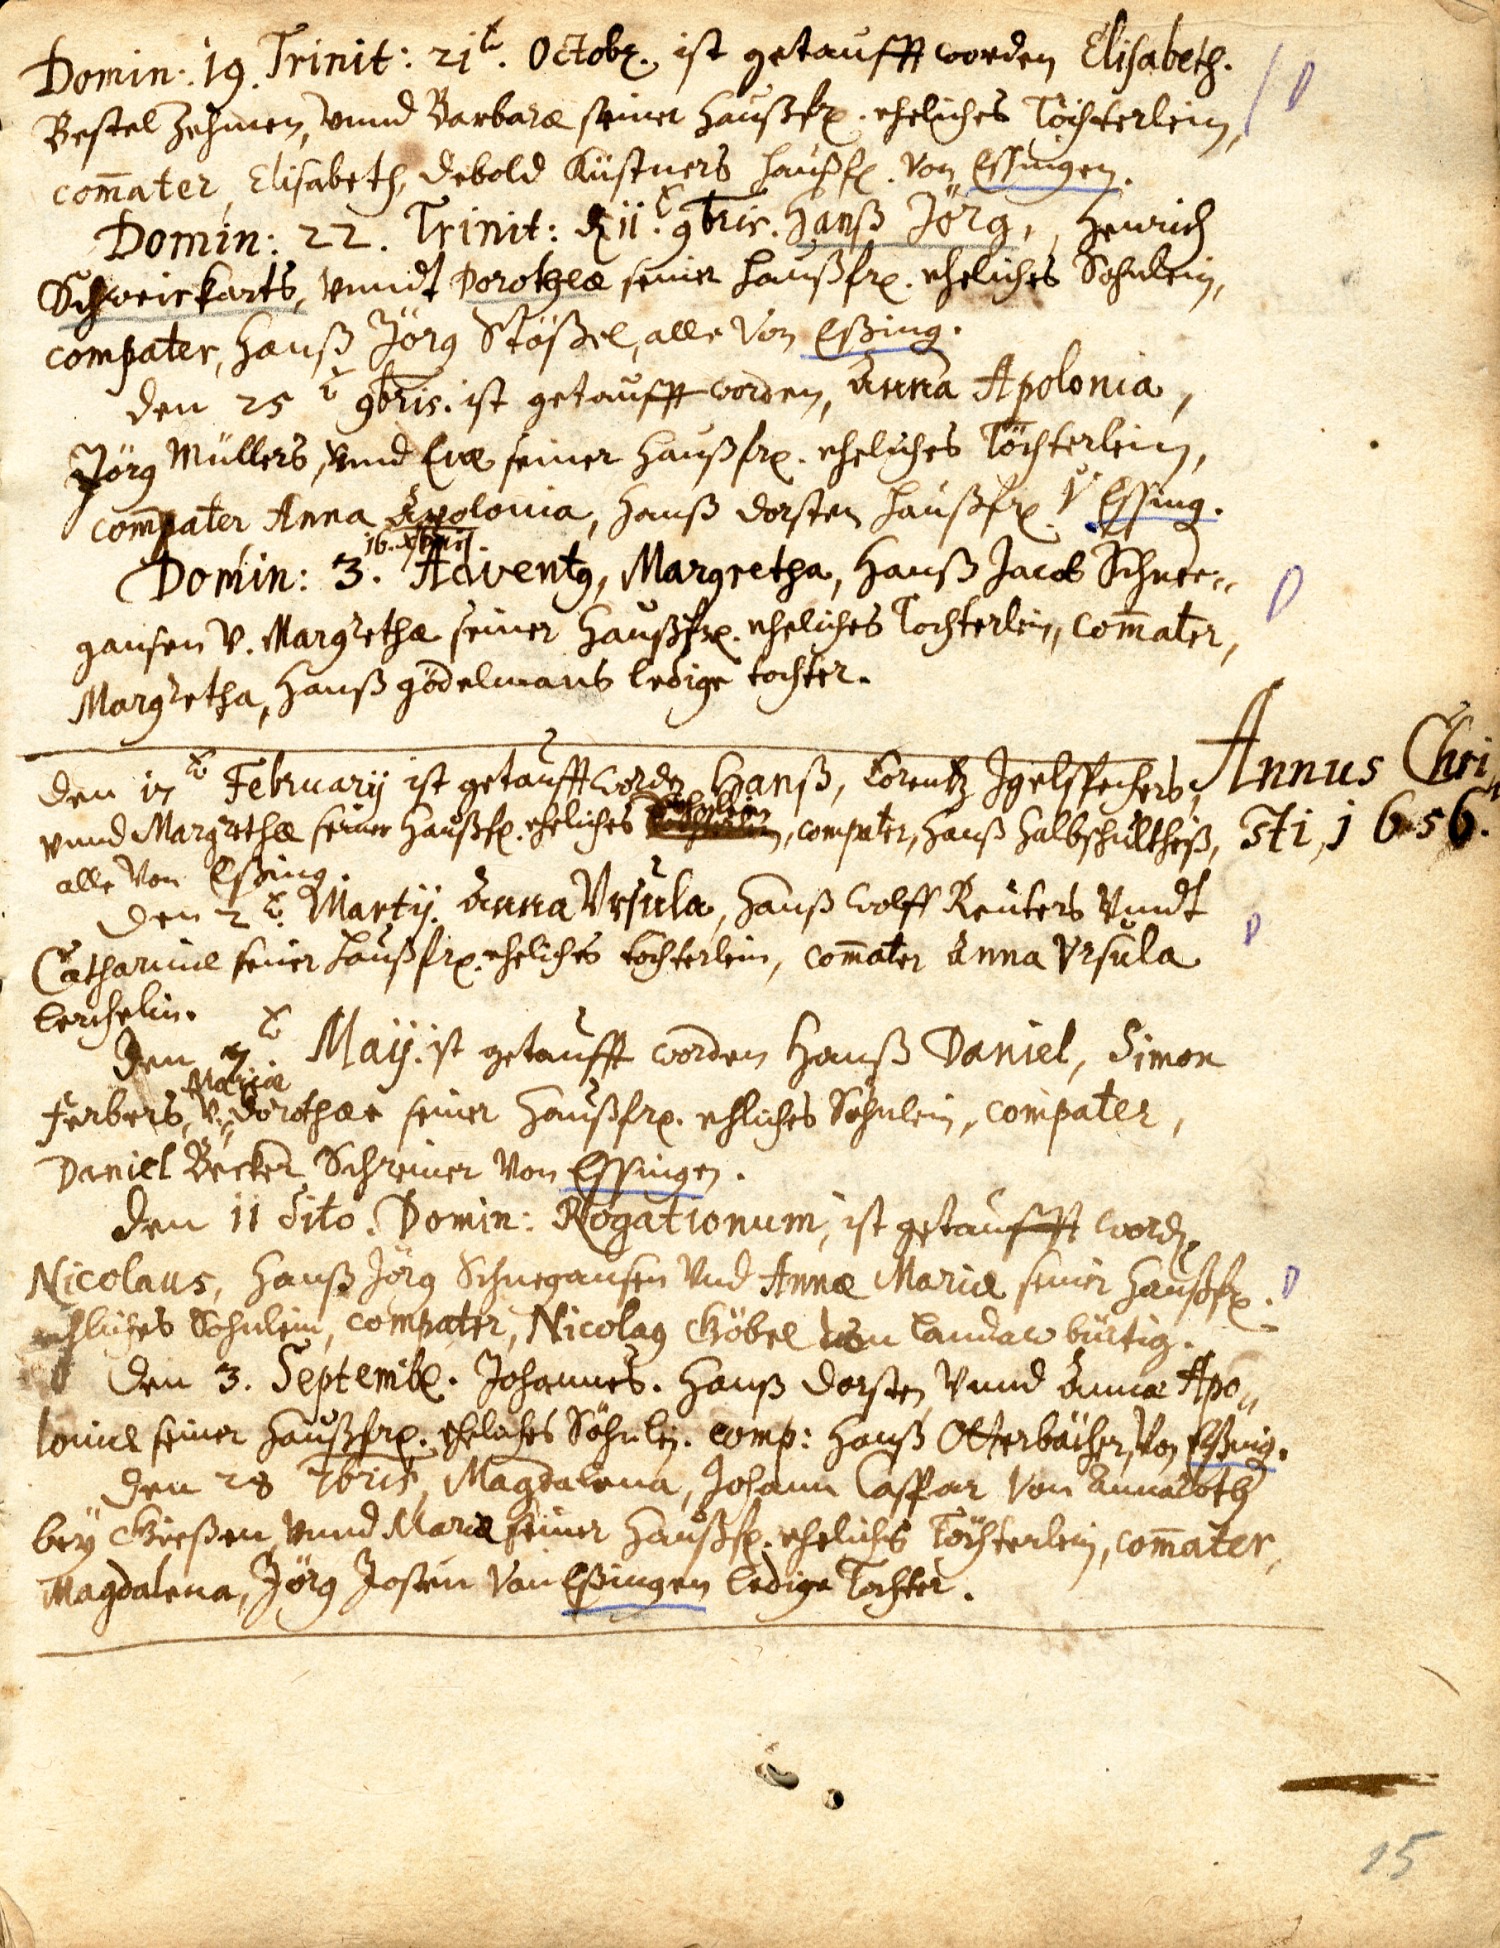 Domin: 19. Trinit: 21t. Octobr. ist getaufft worden Elisabeth.
Bestel Zehmen, vnnd Barbaræ seiner Haußfr. eheliches Töchterlein,
com̄ater, Elisabeth, Debold Küstners Haußf. von Essingen.
Domin: 22. Trinit: 11t. 9bris. Hanß Jörg, Henrich
Schweickarts, vnndt Dorotheæ seiner Haußfr. eheliches Söhnlein,
compater, Hanß Jörg Stößel, alle von Eßing.
Den 25t 9bris. ist getaufft worden, Anna Apolonia,
Jörg Müllers, vnnd Evæ seiner Haußfr. eheliches Töchterlein,
compater Anna Apolonia, Hanß Dorsten Haußfr. v. Essing.
16. Xbris.
Domin: 3. Advent9, Margretha, Hanß Jacob Schnee-
gansen v. Margrethæ seiner Haußfr. eheliches Tochterlein, com̄ater,
Margretha, Hanß Gödelmans ledige tochter.
Annus Chri
sti, 1656.
Den 17t February ist getaufft worden Hanß, Lorentz Igelspechers,
vnnd Margrethæ seiner Haußf. eheliches Söhnlein, compater, Hanß Halbschultheiß,
alle von Eßing.
Den 2t. Martij. Anna Vrsula, Hanß Wolff Reuters vnndt
Catharinæ seiner Haußfr. eheliches tochterlein, com̄ater Anna Vrsula
Lerchelin.
Den 7t. Maij. ist getaufft worden Hanß Daniel, Simon
Ferbers, v. Mariæ Dorothææ seiner Haußfr. ehliches Söhnlein, compater,
Daniel Becker Schreiner von Essingen.
Den 11 dito. Domin: Rogationum, ist getaufft word.
Nicolaus, Hanß Jörg Schnegansen vnd Annæ Mariæ seiner Haußfr.
ehliches Söhnlein, compater, Nicola9 Göbel von Landaw bürtig.
Den 3. Septembr. Johannes. Hanß Dorsten vnnd Annæ Apo-
loniæ seiner Haußfr. eheliches Söhnlein. comp: Hanß Otterbächer, von Eßing.
Den 28 7bris, Magdalena, Johann Caspar von Annaroth
bey Giesßen vnnd Mariæ seiner Haußf. eheliches Töchterlein, com̄ater,
Magdalena, Jörg Josten von Eßingen ledige Tochter.
15